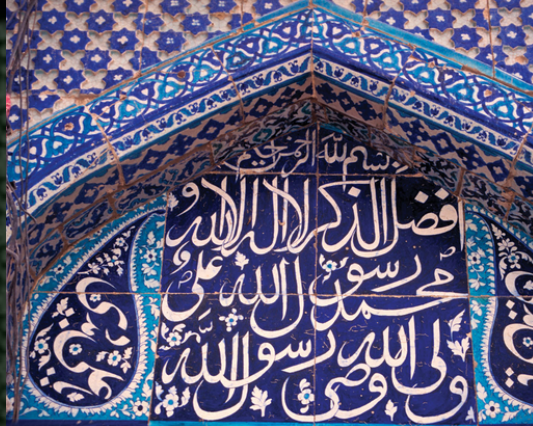 بسم الله الرحمن الرحيم
افضل الذكر لا اله الا الله
محمد رسول الله علی
ولی الله وصی رسول الله